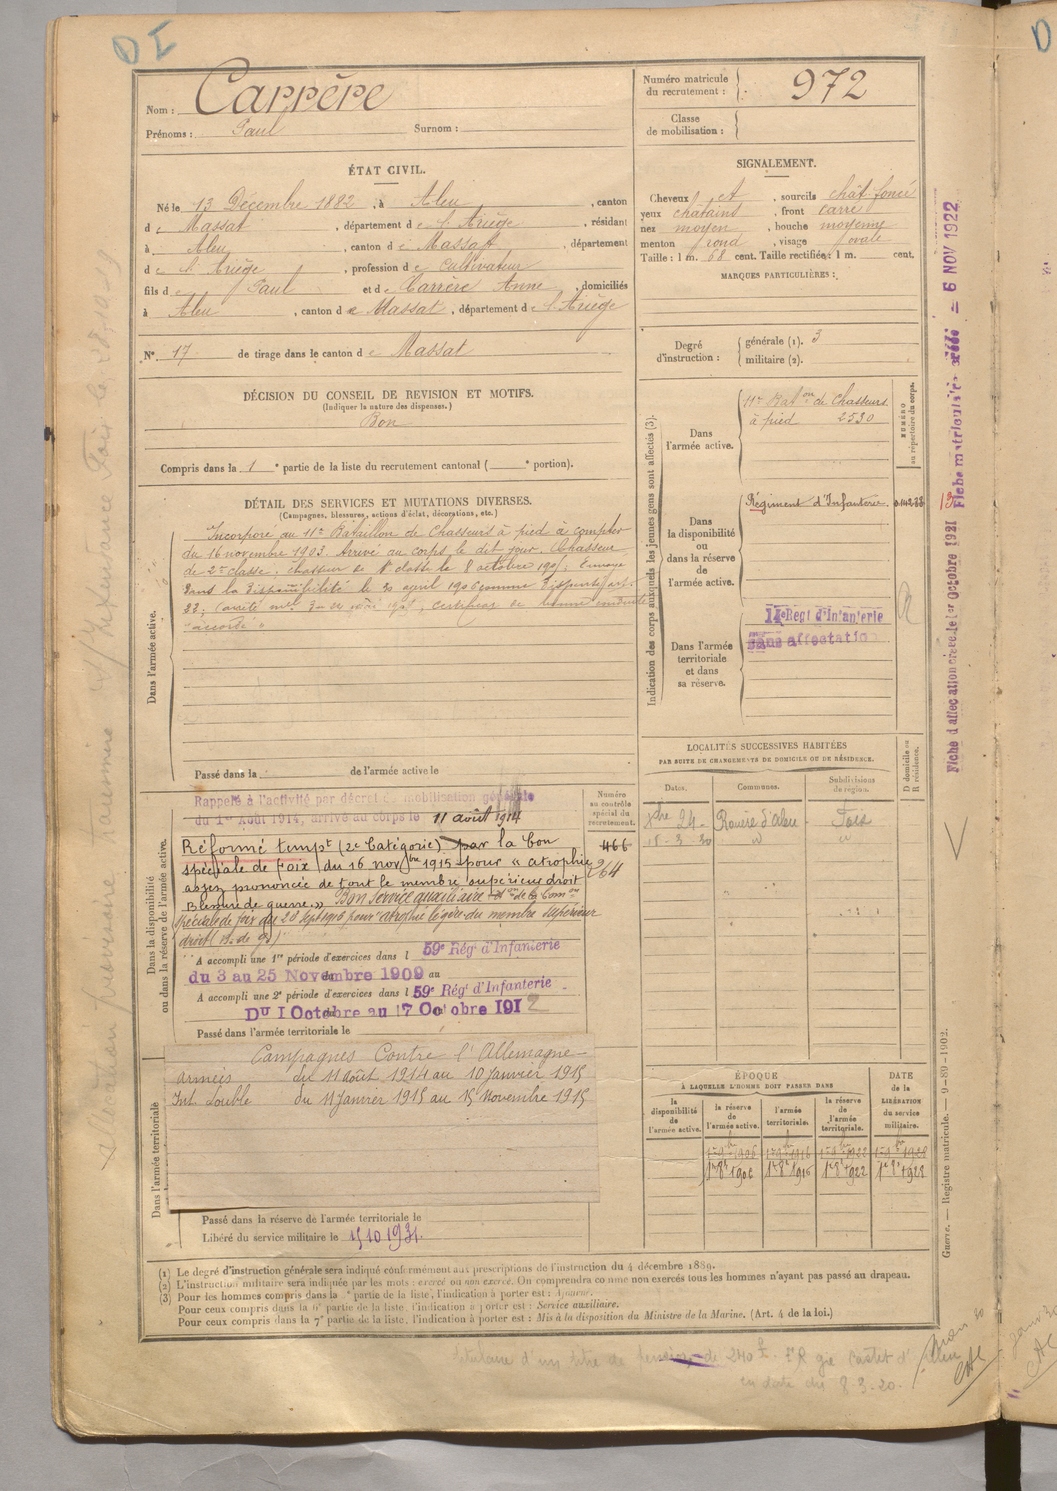 D I
Nom : Carrère
Prénoms : Paul Surnom :
Numéro matricule du recrutement : 972
Classe de mobilisation :
ÉTAT CIVIL.
Né le 13 Décembre 1882, à Aleu, canton
de Massat, département de l'Ariège, résidant
à Aleu, canton de Massat, département
de l'Ariège, profession de cultivateur
fils de Paul et de Carrère Anne, domiciliés
à Aleu, canton de Massat, département de l'Ariège
N° 17 de tirage dans le canton de Massat
SIGNALEMENT.
Cheveux et, sourcils chât foncé
yeux chatains, front carré
nez moyen, bouche moyenne
menton rond, visage ovale
Taille : 1 m. 68 cent. Taille rectifiée : 1 m. cent.
MARQUES PARTICULIÈRES :
Degré d'instruction : générale (1). 3
militaire (2).
DÉCISION DU CONSEIL DE REVISION ET MOTIFS.
(Indiquer la nature des dispenses.)
Bon
Compris dans la 1e partie de la liste du recrutement cantonal ( e portion).
DÉTAIL DES SERVICES ET MUTATIONS DIVERSES.
(Campagnes, blessures, actions d'éclat, décorations, etc.)
Dans l'armée active.
Incorporé au 11e Bataillon de Chasseurs à pied à compter
du 16 novembre 1903. Arrivé au corps le dit jour. Chasseur
de 2e classe. Chasseur de 1e classe le 8 octobre 1905. Envoyé
dans la disponibilité le 20 avril 1906 comme
certificat de bonne conduite
"accordé"
Passé dans la de l'armée active le
Indication des corps auxquels les jeunes gens sont affectés (3).
NUMÉRO au répertoire du corps.
Dans l'armée active.
11e Baton de Chasseurs
à pied 2530
Dans la disponibilité ou dans la réserve de l'armée active.
Régiment d'Infanterie
Dans l'armée territoriale et dans sa réserve.
14e Régt d'Infanterie
Sans affectation
R
LOCALITÉS SUCCESSIVES HABITÉES
PAR SUITE DE CHANGEMENTS DE DOMICILE OU DE RÉSIDENCE.
Dates. Communes. Subdivisions de région. D domicile ou R résidence.
24 - d'Aleu Foix
15-3-30 " "
Dans la disponibilité ou dans la réserve de l'armée active.
Numéro au contrôle spécial du recrutement.
466
264
Rappelé à l'activité par décret de mobilisation générale
du 1er Août 1914, arrivé au corps le 11 août 1914
Réformé tempt (2e Catégorie) par la Con
spéciale de Foix du 16 novbre 1915 pour "atrophie
assez prononcée de tout le membre supérieur droit
Blessure de guerre." Bon service auxiliaire don de la Comon
spéciale de foix du 28 sept 1916 pour atrophie légère du membre supérieur
droit (B. de g.)
A accompli une 1re période d'exercices dans l 59e Rég' d'Infanterie
du 3 au 25 Novembre 1909 au
A accompli une 2e période d'exercices dans l 59e Rég' d'Infanterie
Du 1 Octobre au 17 Octobre 1912
Passé dans l'armée territoriale le
Dans l'armée territoriale
Campagnes Contre l'Allemagne
armées du 11 août 1914 au 10 Janvier 1915
Int. double du 11 Janvier 1915 au 15 Novembre 1915
Passé dans la réserve de l'armée territoriale le
Libéré du service militaire le 15 10 1931.
ÉPOQUE
À LAQUELLE L'HOMME DOIT PASSER DANS
la disponibilité de l'armée active. la réserve de l'armée active. l'armée territoriale. la réserve de l'armée territoriale.
DATE de la LIBÉRATION du service militaire.
1er 8bre 1906 1er 8bre 1916 1er 8bre 1922 1er 8bre 1928
(1) Le degré d'instruction générale sera indiqué conformément aux prescriptions de l'instruction du 4 décembre 1889.
(2) L'instruction militaire sera indiquée par les mots : exercé ou non exercé. On comprendra comme non exercés tous les hommes n'ayant pas passé au drapeau.
(3) Pour les hommes compris dans la partie de la liste, l'indication à porter est : Ajourné.
Pour ceux compris dans la 6e partie de la liste, l'indication à porter est : Service auxiliaire.
Pour ceux compris dans la 7e partie de la liste, l'indication à porter est : Mis à la disposition du Ministre de la Marine. (Art. 4 de la loi.)
Titulaire d'un titre de pension de 240 f.
en date du 8-3-20.
Fiche d'affectation créée le 1er Octobre 1921
Fiche matricule créée = 6 NOV 1922
Guerre. — Registre matricule. — 9-89-1902.